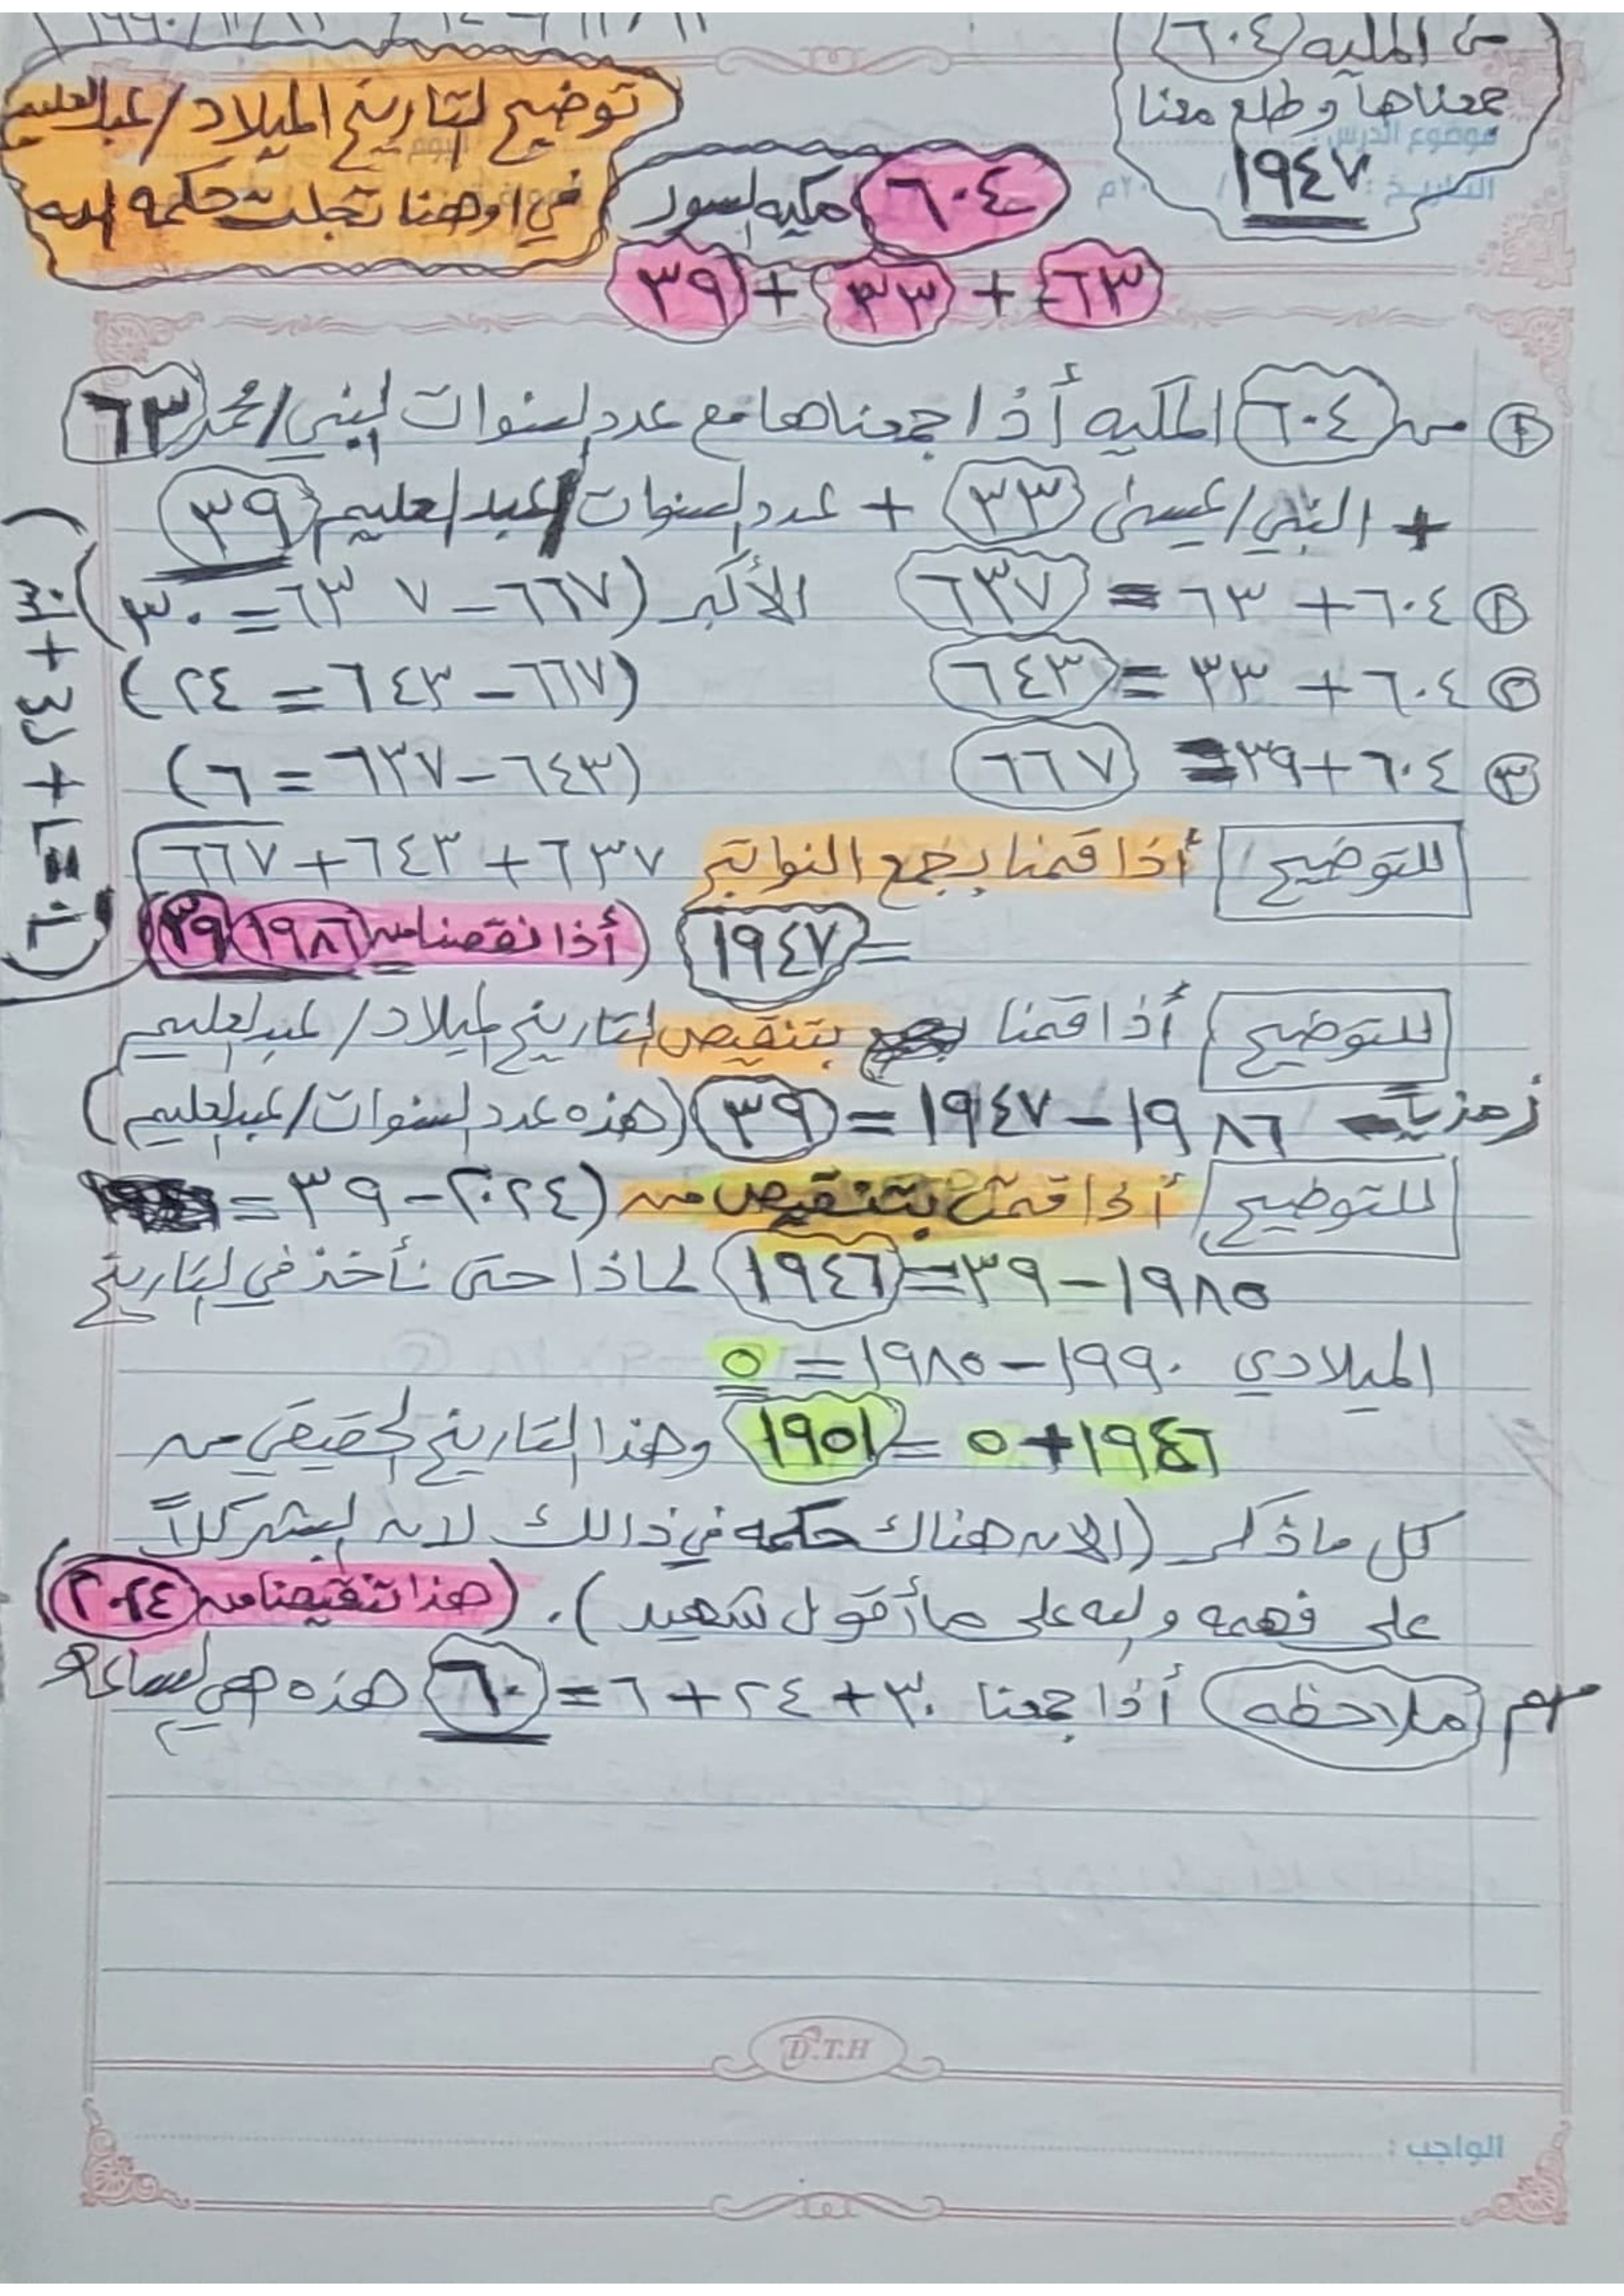 من المكيه ٦٠٤
جمعناها وطلع معنا
١٩٤٧
توضيح لتاريخ الميلاد / عبدالعليم
في اوهنا تجلت حكمه الله
٦٠٤ مكيه السور
٦٣ + ٣٣ + ٣٩
موضوع الدرس :
التاريخ : / ٢٠م
من ٦٠٤ المكيه أذا جمعناها مع عدد السنوات النبي / محمد ٦٣
+ النبي / عيسى ٣٣ + عدد السنوات / عبدالعليم ٣٩
٦٠٤ + ٦٣ = ٦٣٧ الأكبر (٦٦٧ – ٦٣٧ = ٣٠)
② ٦٠٤ + ٣٣ = ٦٤٣ (٦٦٧ – ٦٤٣ = ٢٤)
③ ٦٠٤ + ٣٩ = ٦٦٧ (٦٤٣ – ٦٣٧ = ٦)
(٣٠ + ٢٤ + ٦ = ٦٠)
للتوضيح أذا قمنا بجمع النواتج ٦٣٧ + ٦٤٣ + ٦٦٧
= ١٩٤٧ (أذا نقصنا من ١٩٨٦ ٣٩)
للتوضيح أذا قمنا بتنقيص التاريخ الميلاد / عبدالعليم
رمزياً ١٩٨٦ – ١٩٤٧ = ٣٩ (هذه عدد السنوات / عبدالعليم)
للتوضيح أذا قمنا بتنقيص من (٢٠٢٤ – ٣٩ =
١٩٨٥ – ٣٩ = ١٩٤٦ لماذا حتى نأخذ في التاريخ
الميلادي ١٩٩٠ – ١٩٨٥ = ٥
١٩٤٦ + ٥ = ١٩٥١ وهذا التاريخ الحقيقي من
كل ماذكر (الان هناك حكمه في ذالك لان البشر كلاً
على فهمه والله على ما أقول شهيد) . (هذا تنقيصنا من ٢٠٢٤)
مهم ملاحظه أذا جمعنا ٣٠ + ٢٤ + ٦ = ٦٠ هذه هي الساعه
D.T.H
الواجب :